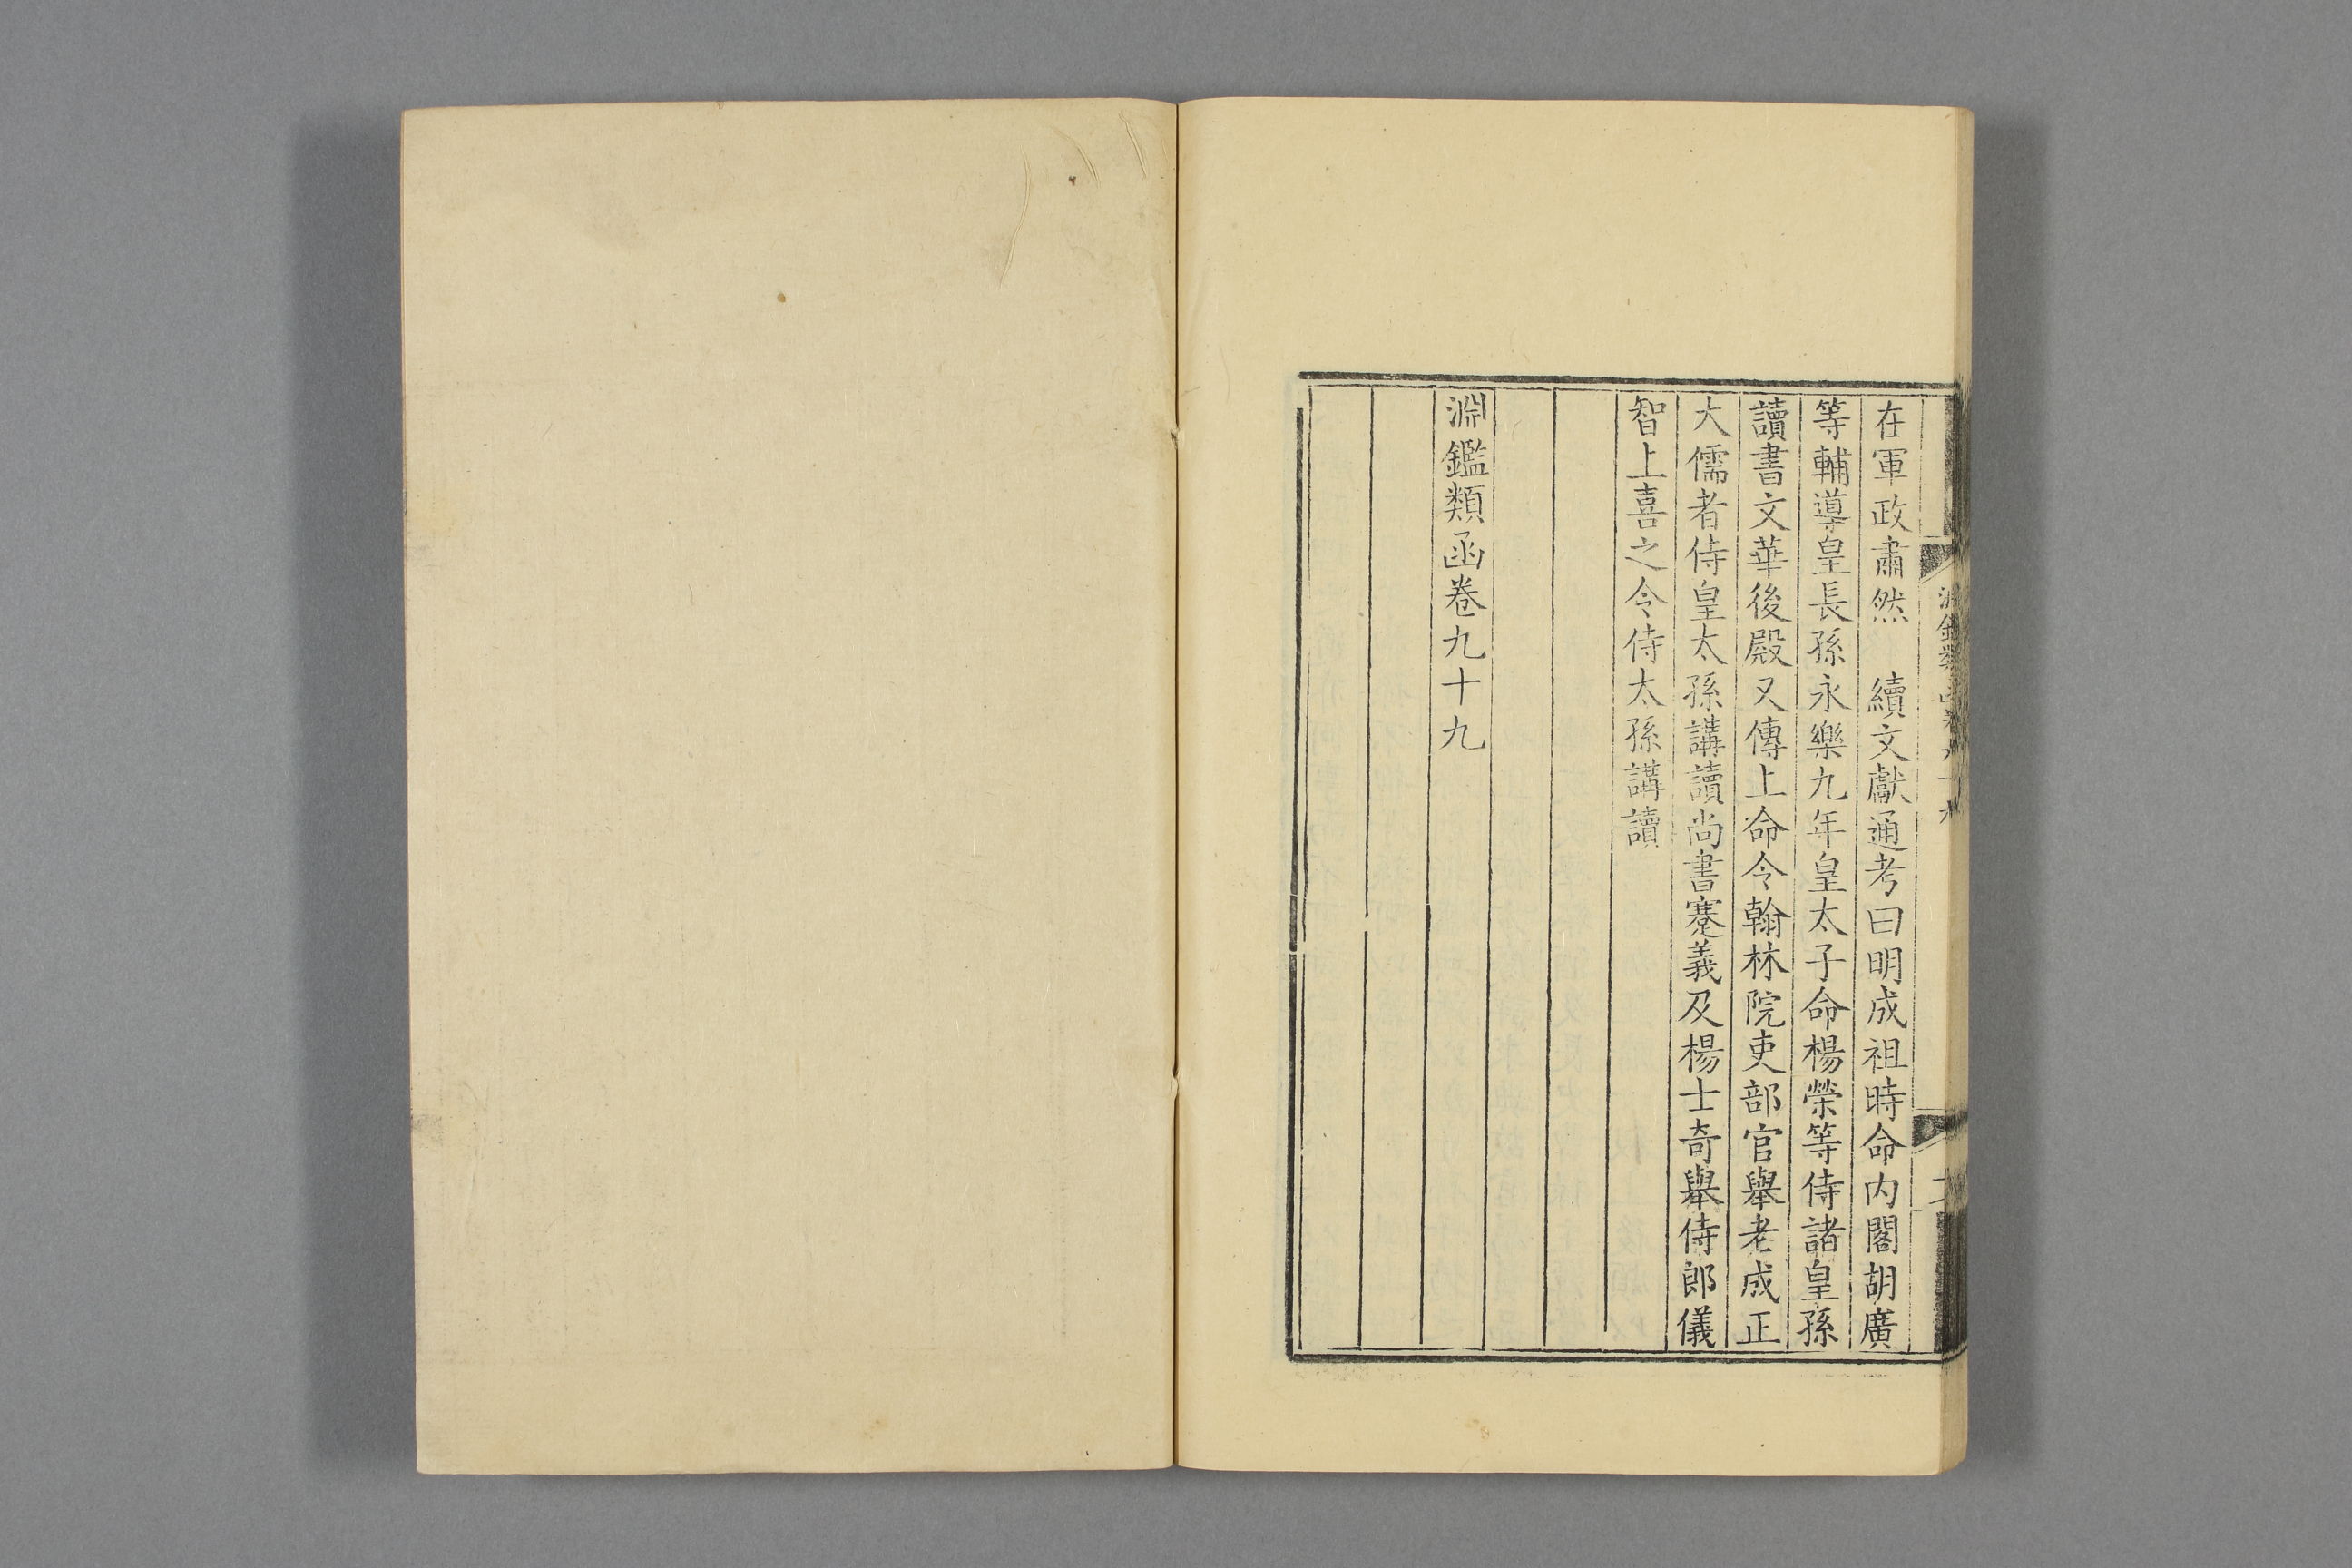 在軍政肅然　續文獻通考曰明成祖時命内閣胡廣
等輔導皇長孫永樂九年皇太子命楊榮等侍諸皇孫
讀書文華後殿又傳上命令翰林院吏部官舉老成正
大儒者侍皇太孫講讀尚書蹇義及楊士奇舉侍郎儀
智上喜之令侍太孫講讀
淵鑑類函卷九十九